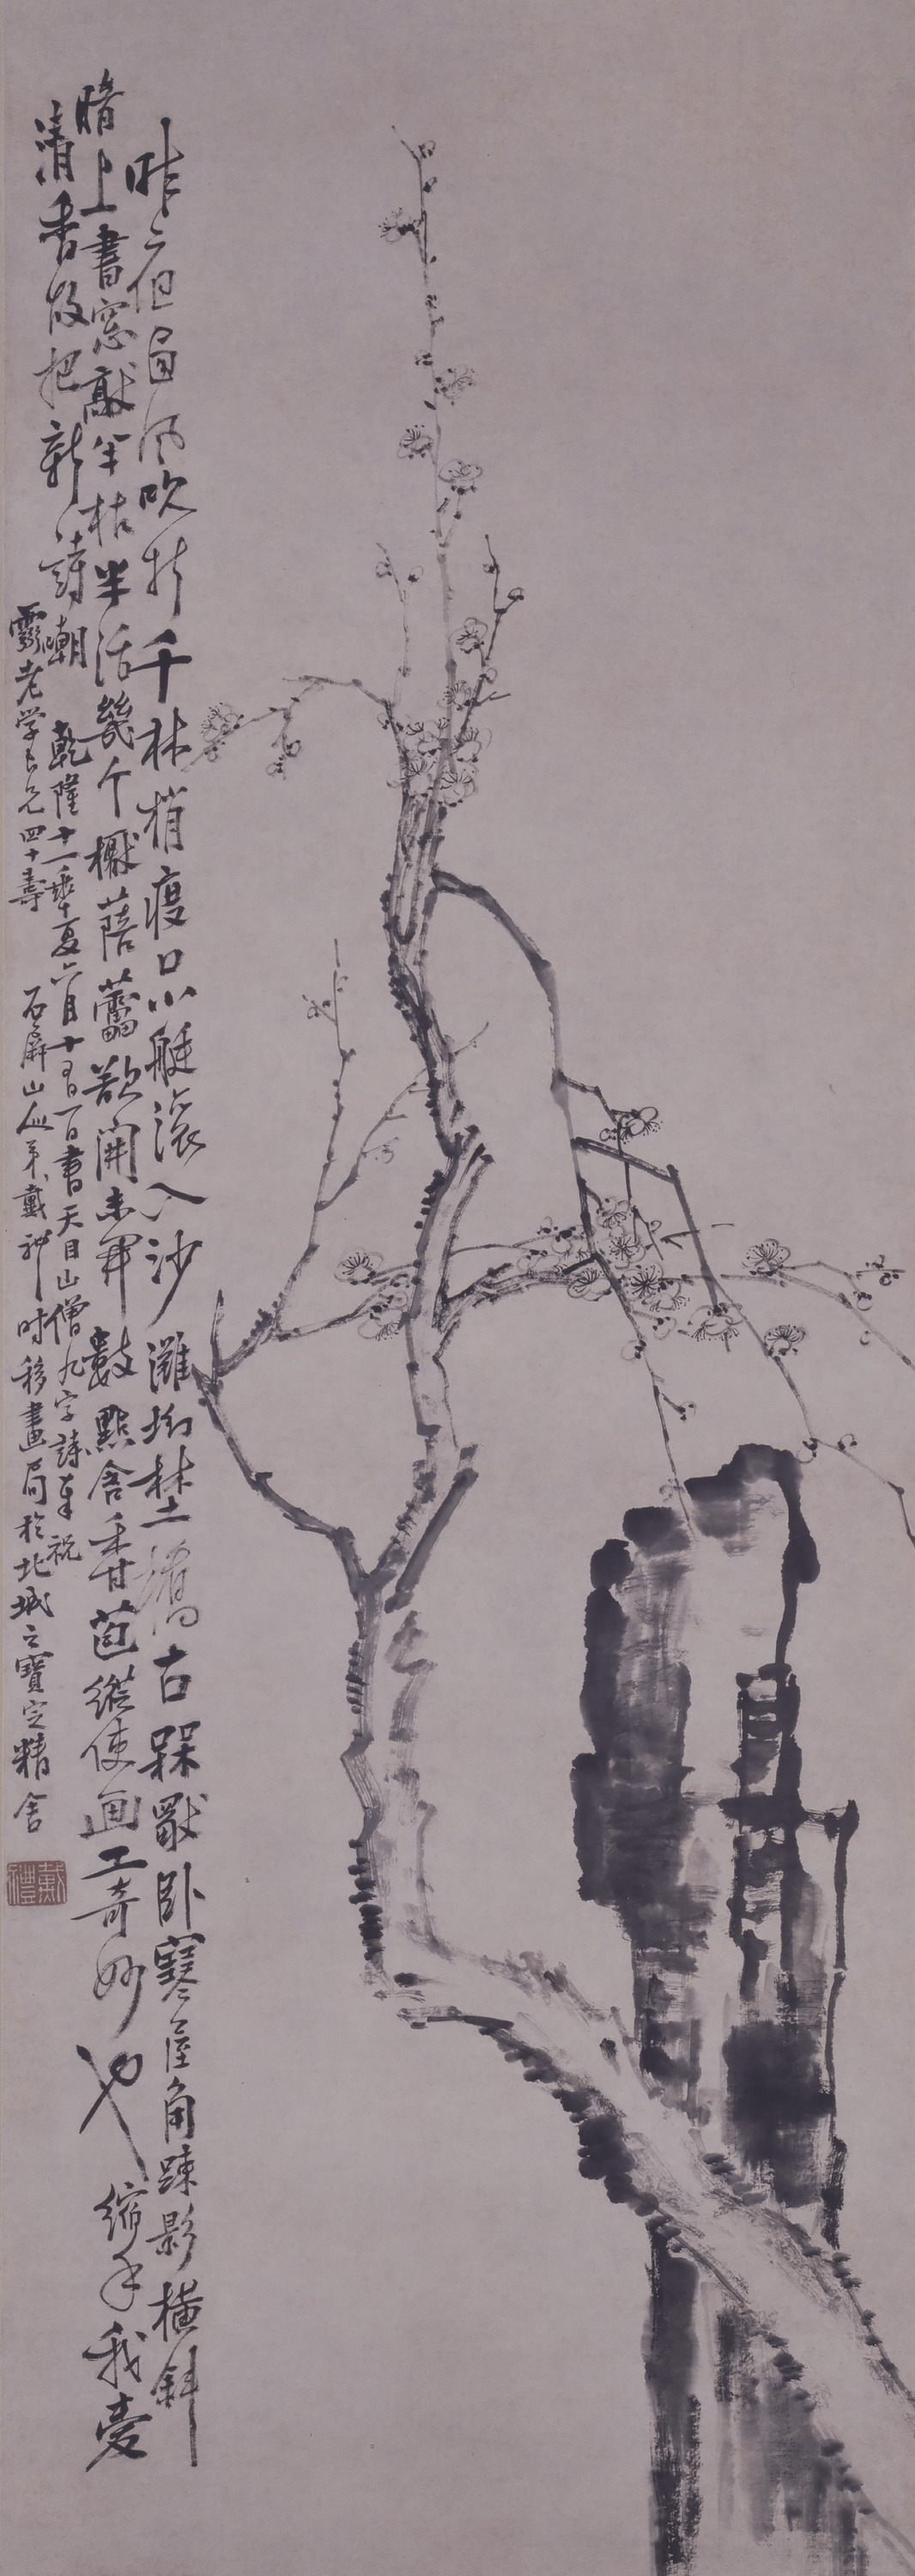 昨夕但風吹折千林梢渡口小艇滚入沙灘坳埜橋古槑獸卧寒屋角踈影橫斜
暗上書窓敲半枯半活幾个橛蓓蕾欲開未開數點含香苞縱使画工奇妙也縮手我愛
清香故把新詩嘲 乾隆十一年夏六月十五日書天目山僧九字詩奉祝
霞老学長兄四十壽 石屏山人弟戴礼时移畫局於北城之寶定精舍
戴禮